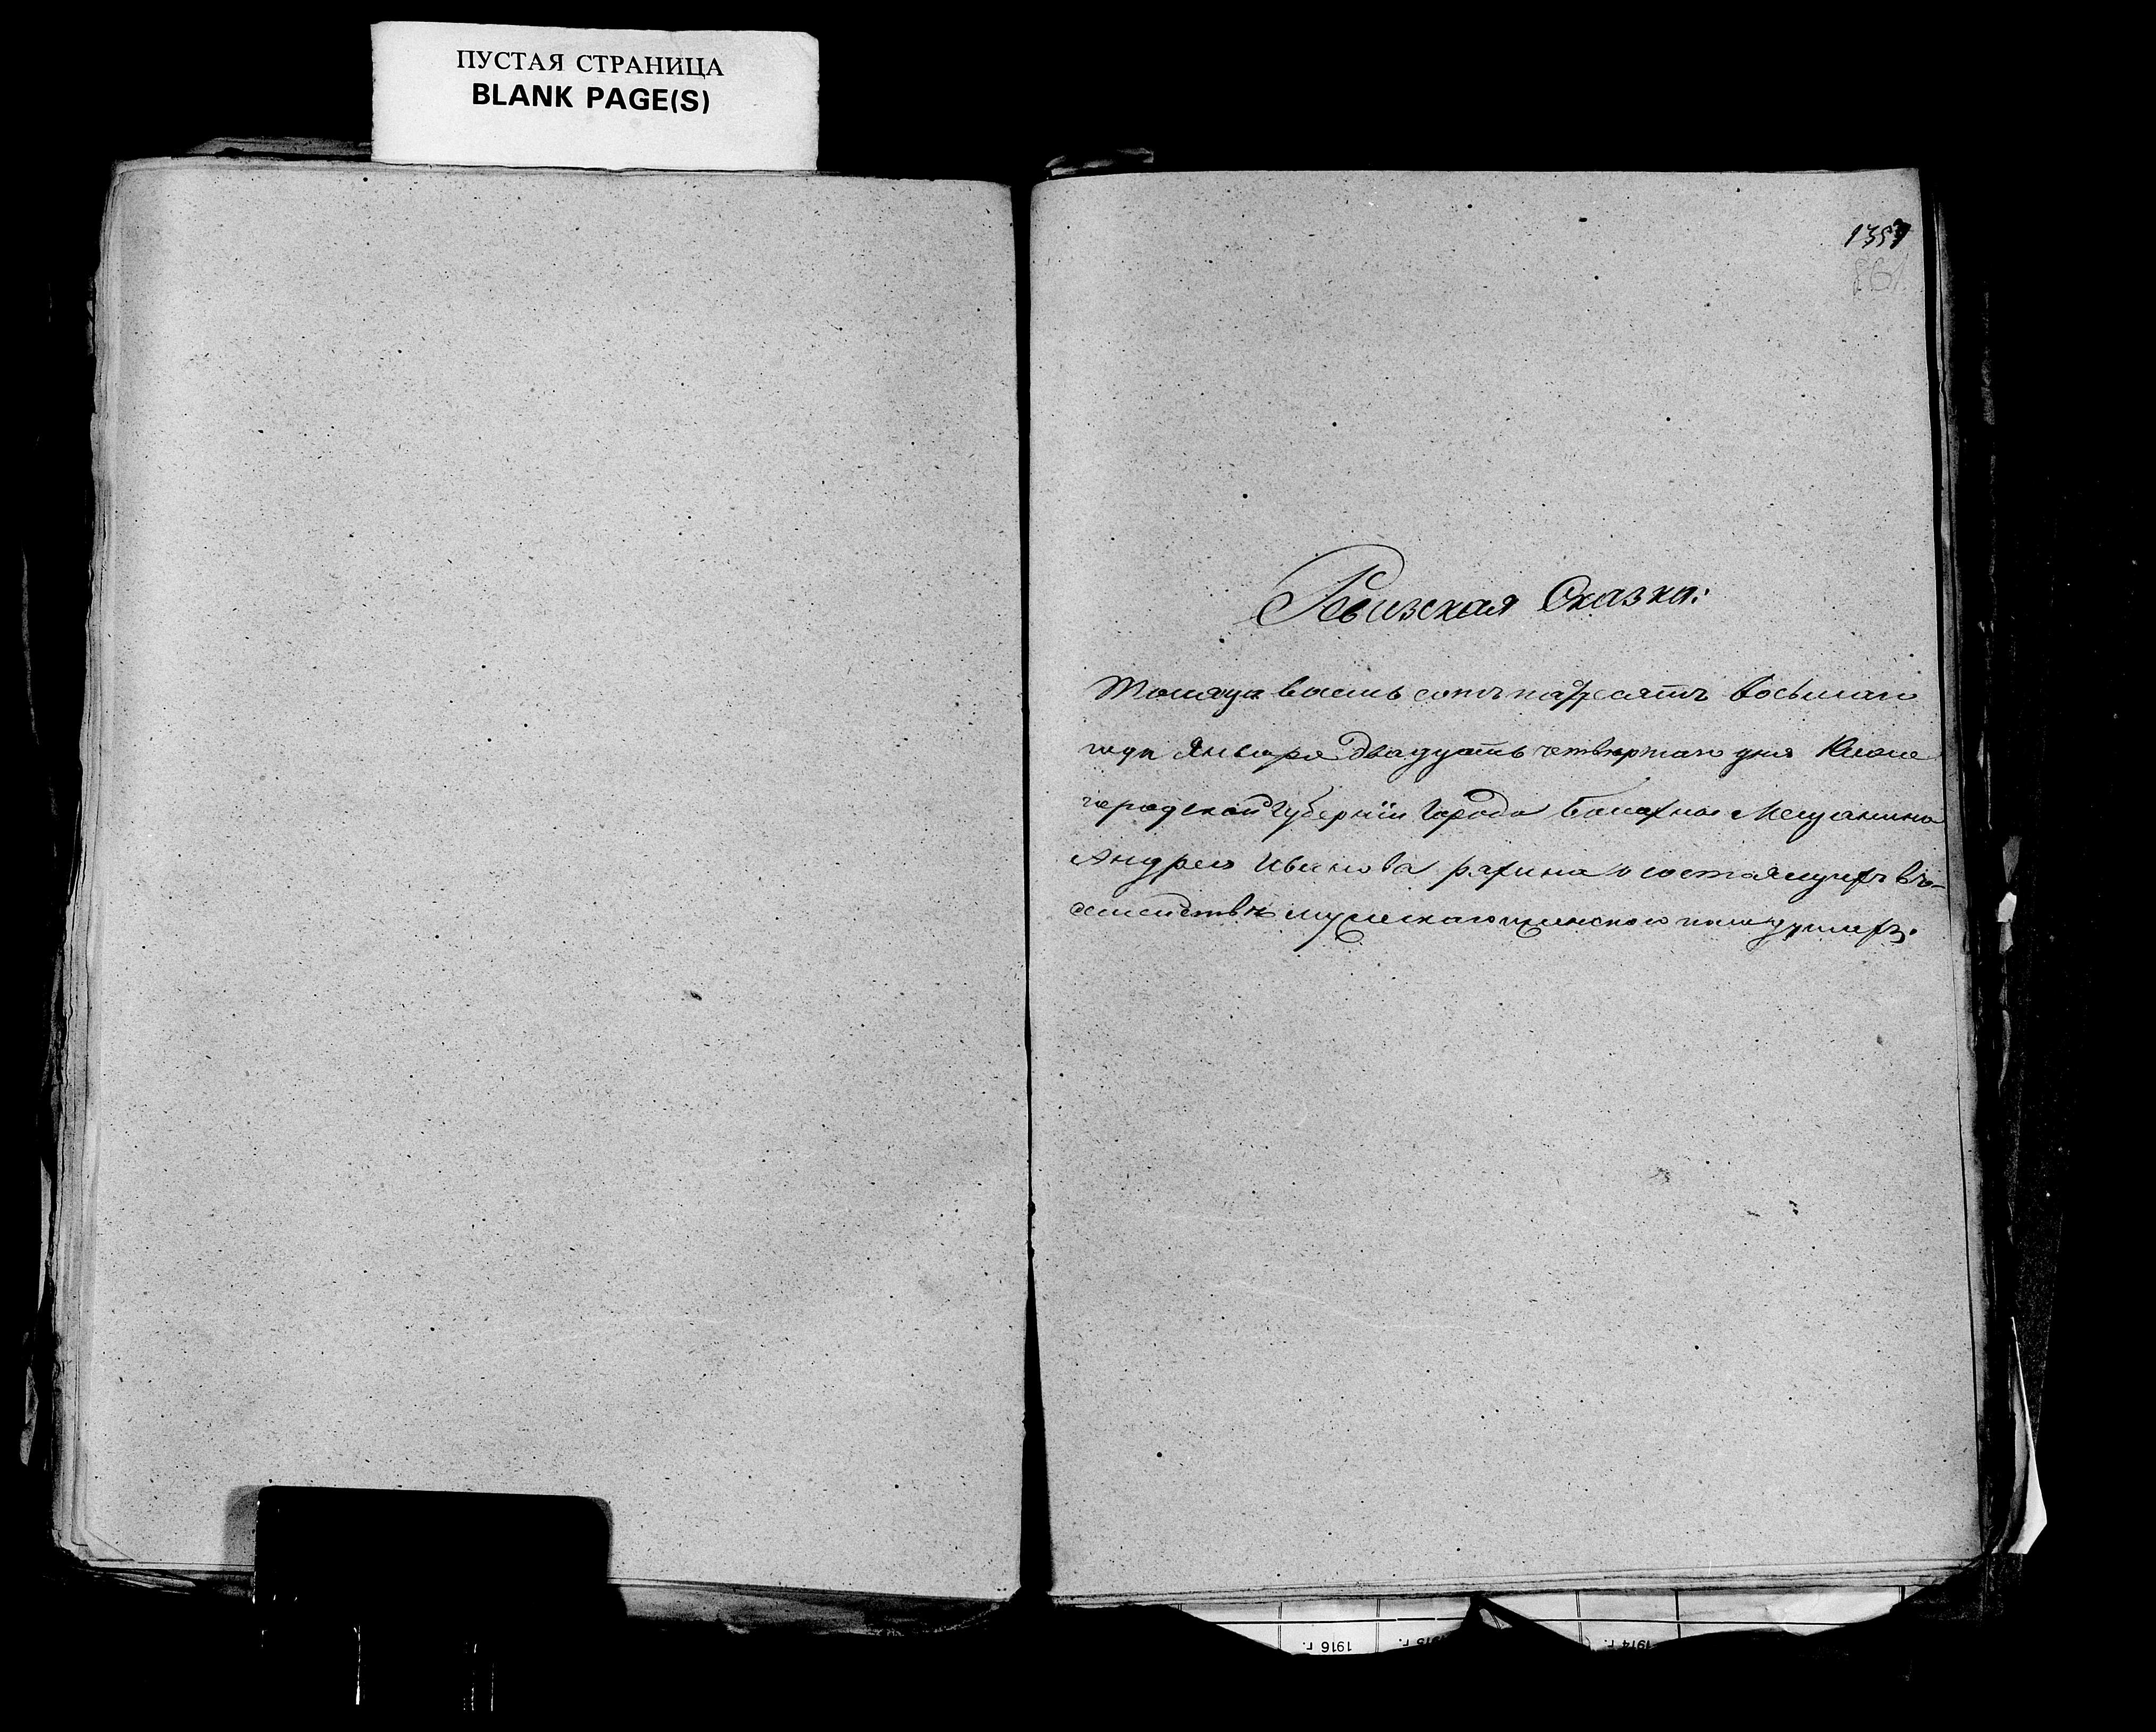 ПУСТАЯ СТРАНИЦА
BLANK PAGE(S)
1357
861
Ревизская Сказка:
Тысяча восемь сотъ пятдесятъ восьмаго
года Января двадцать четвертаго дня Ниже
городской Губерніи Города Балахны Мещанина
Андрея Иванова и состоящихъ въ
семействѣ мужескаго и женскаго пола душахъ.
1916 г.
1915 г.
1914 г.